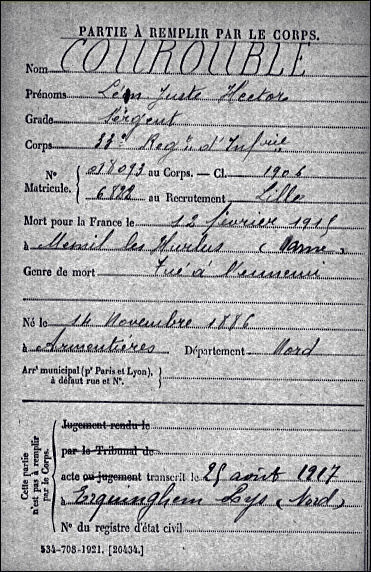 PARTIE À REMPLIR PAR LE CORPS.
Nom COUROUBLE
Prénoms Léon Juste Hector
Grade Sergent
Corps 33e Regt d'Infrie
N° Matricule. { 018093 au Corps. — Cl. 1906
6822 au Recrutement Lille
Mort pour la France le 12 février 1915
à Mesnil les Hurlus (Marne)
Genre de mort Tué à l'ennemi
Né le 14 Novembre 1886
à Armentières Département Nord
Arrt municipal (pr Paris et Lyon), à défaut rue et N°. }
Cette partie n'est pas à remplir par le Corps.
Jugement rendu le
par le Tribunal de
acte ou jugement transcrit le 25 août 1917
à Erquinghem Lys (Nord)
N° du registre d'état civil
534-708-1921. [26434.]